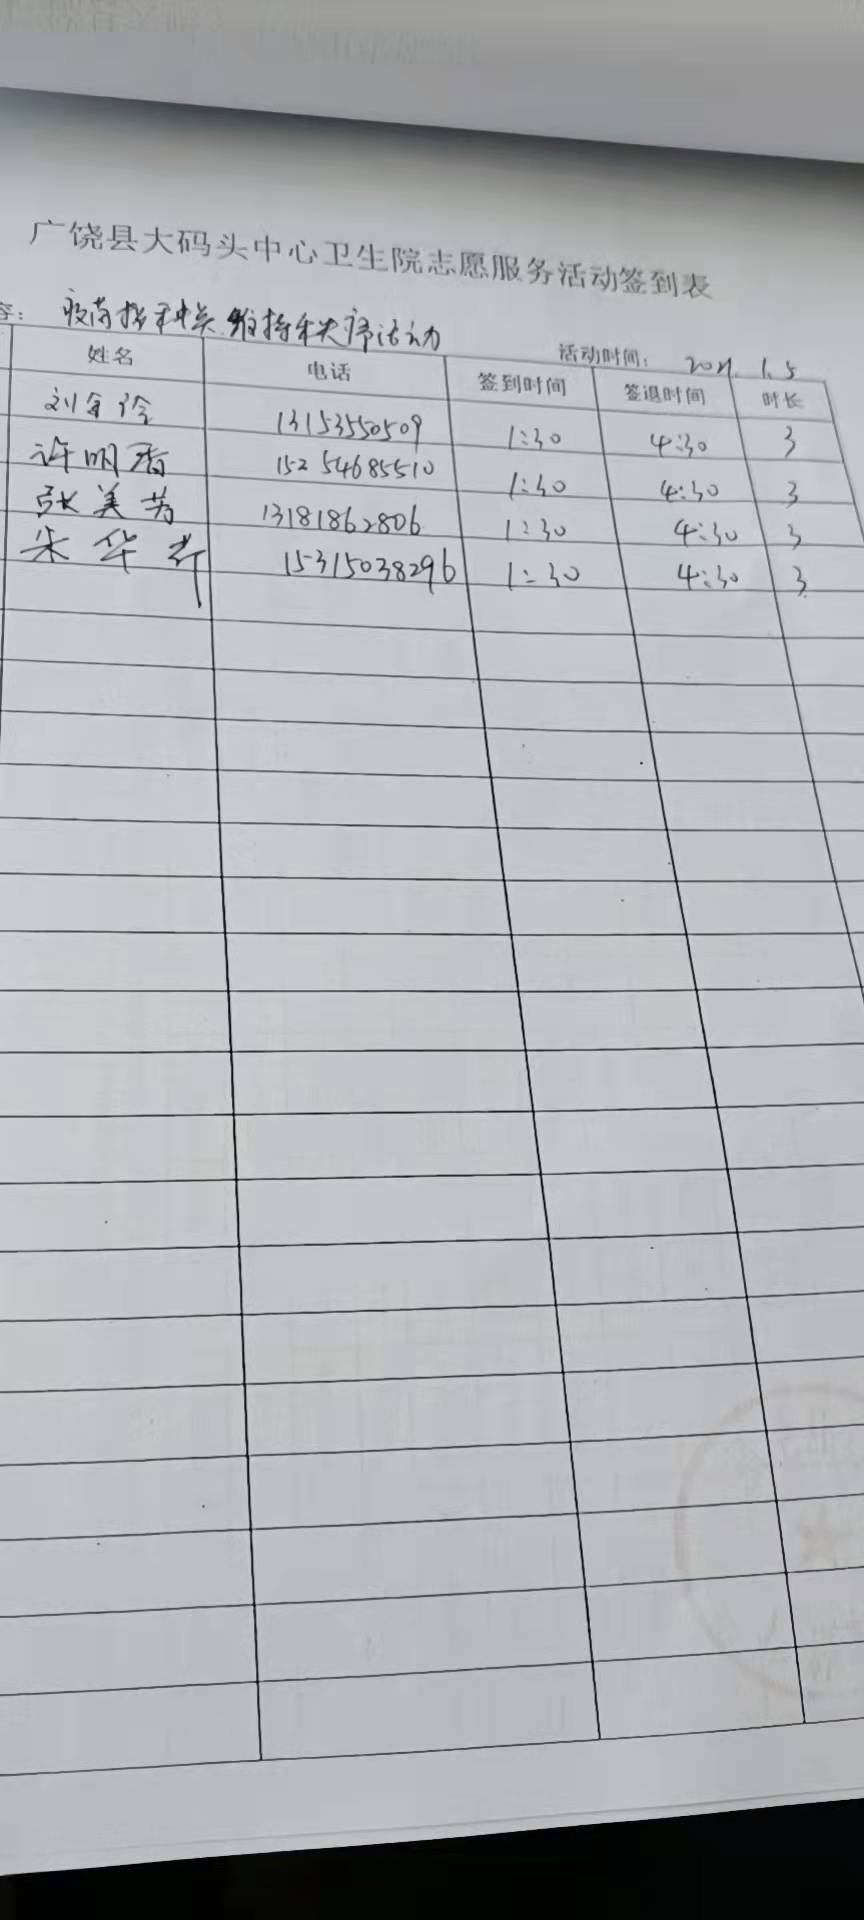 广饶县大码头中心卫生院志愿服务活动签到表
容： 疫苗接种点维持秩序活动 活动时间： 1.5
姓名 电话 签到时间 签退时间 时长
刘 13153550509 1:30 4:30 3
许明香 15254685510 1:30 4:30 3
张美芳 13181862806 1:30 4:30 3
朱华 15315038296 1:30 4:30 3